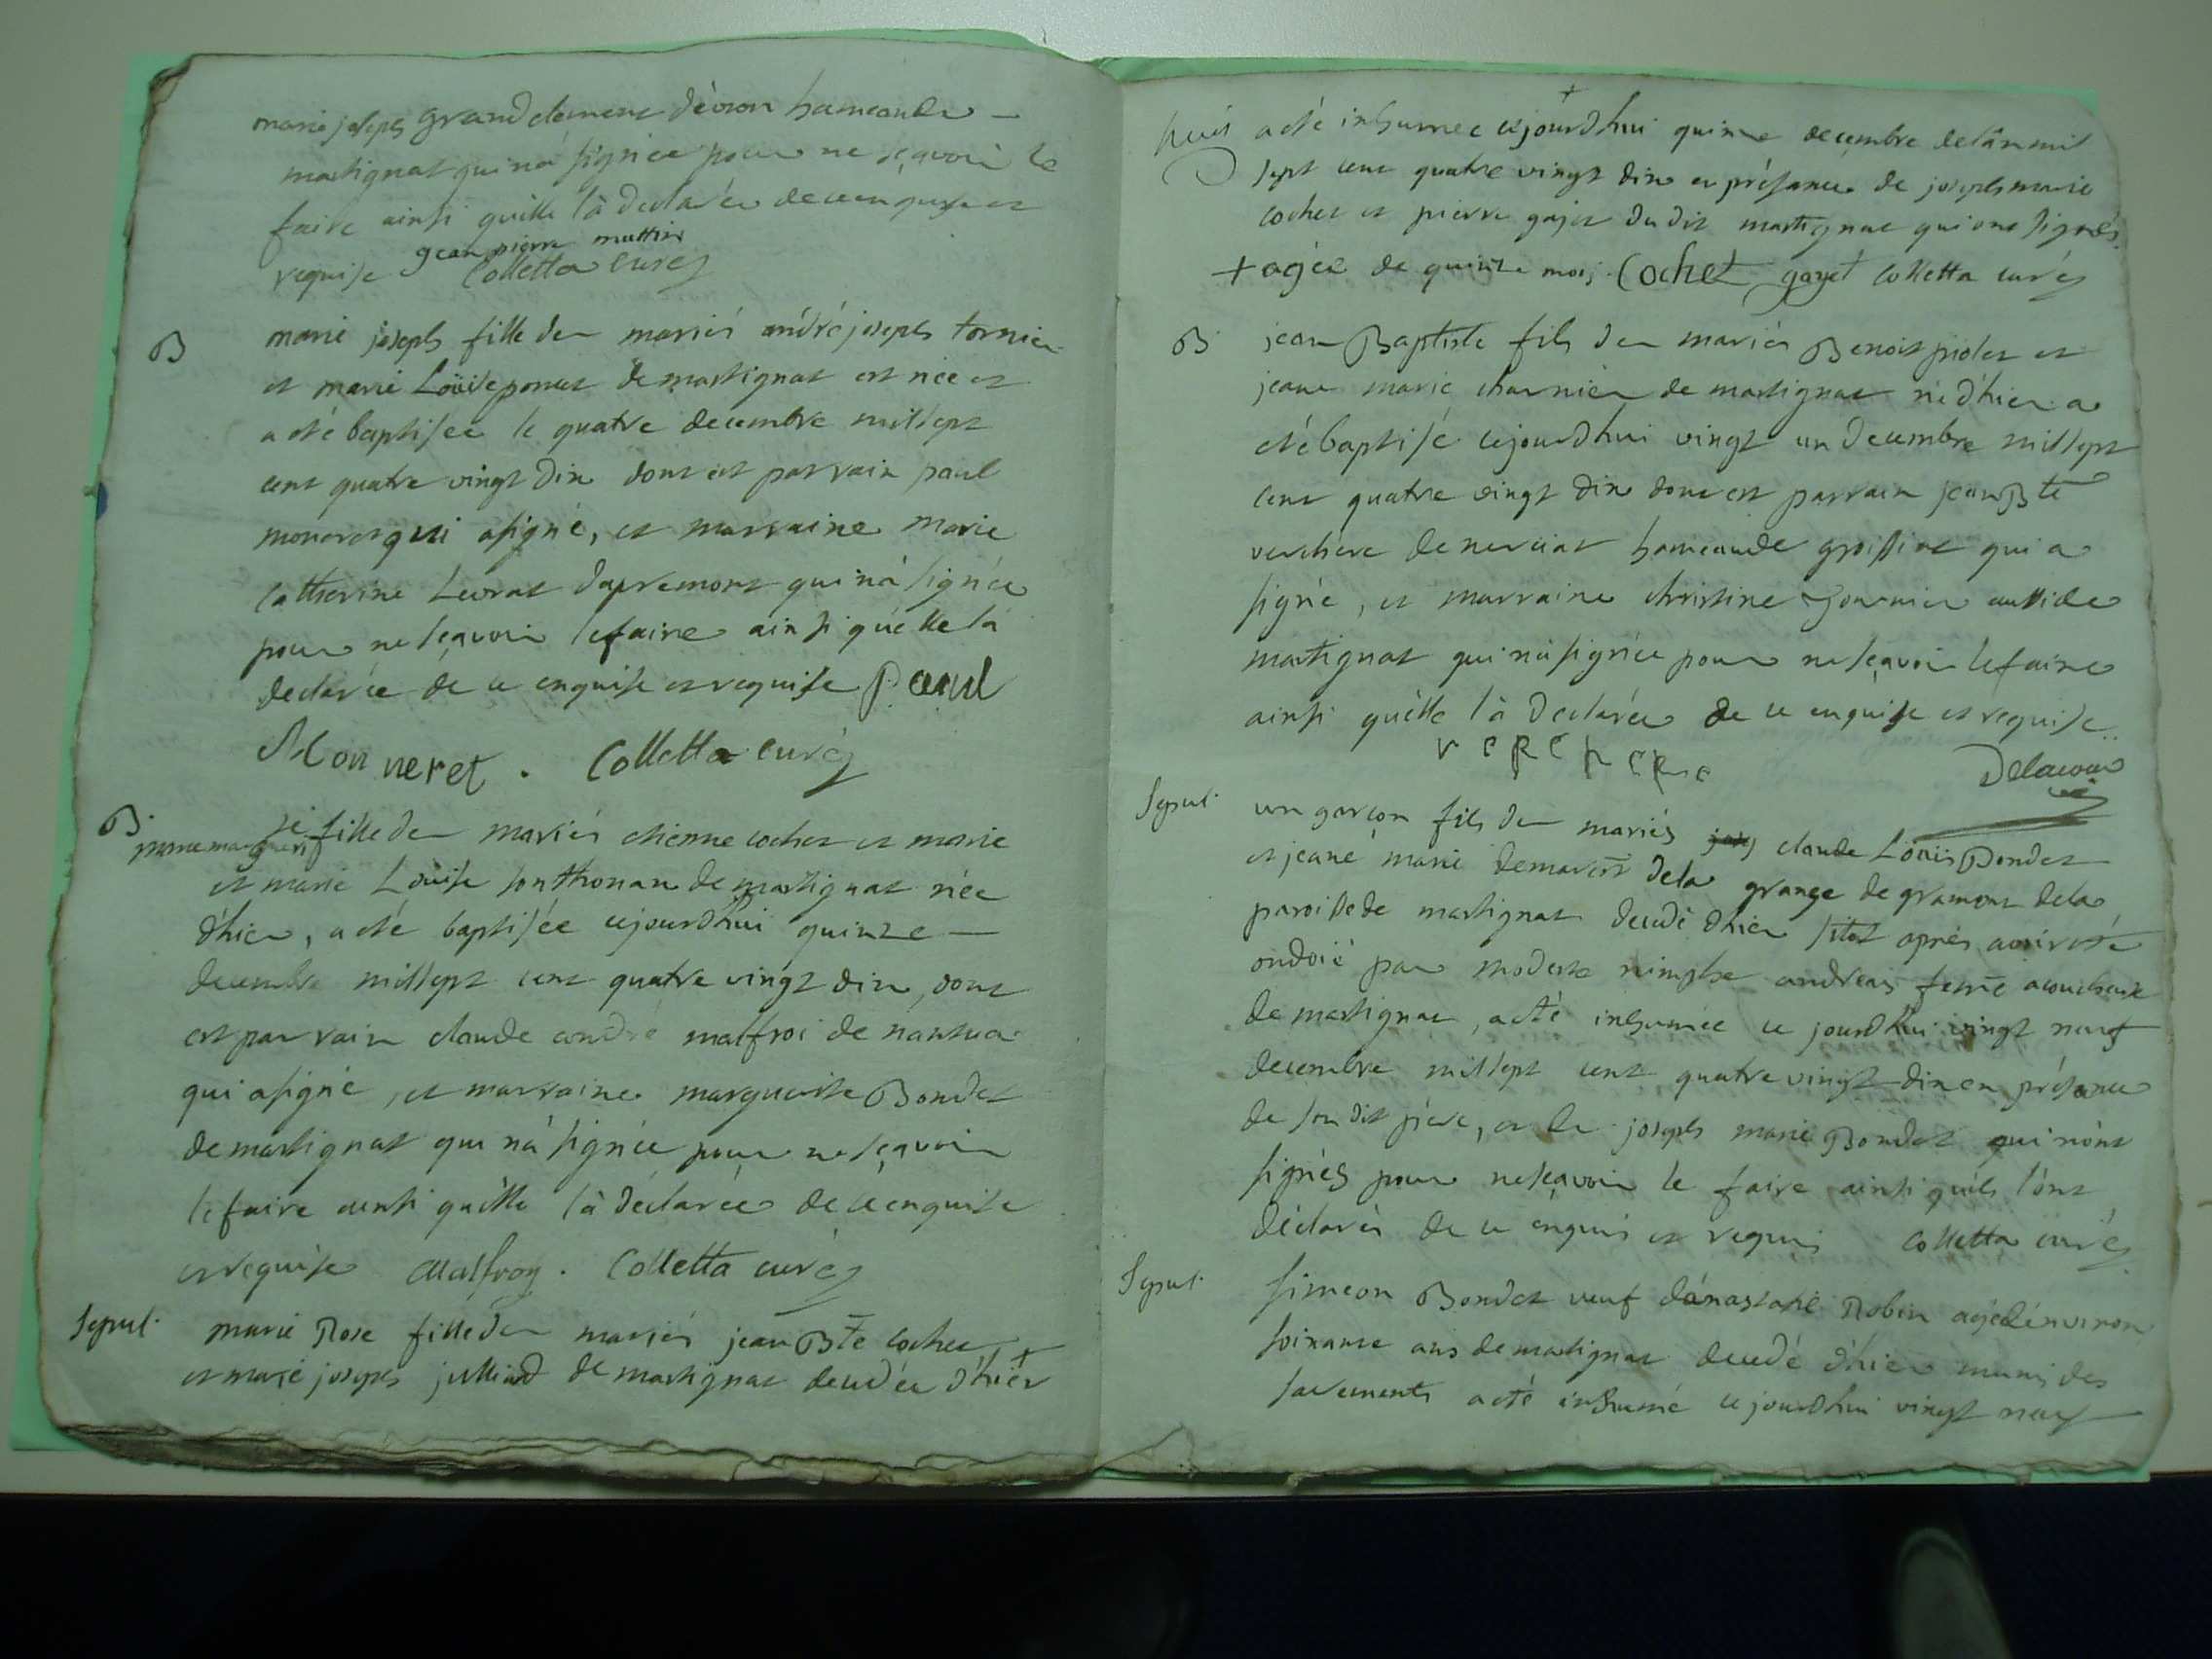 marie joseph grandclement d'évron hameau de —
martignat qui n'a signée pour ne sçavoir le
faire ainsi quelle l'à declarée de ce enquise et
requise gean pierre mattin
Colletta curé
B marie joseph fille des mariés andré joseph tornier
et marie Loüise poncet de martignat est née et
a eté baptisée le quatre decembre mil sept
cent quatre vingt dix dont est parrain paul
moneret qui a signé, et marraine marie
Catherine Levrat dapremont qui n'à signée
pour ne sçavoir le faire ainsi qu'elle l'a
declarée de ce enquise et requise Paul
Monneret . Colletta curé
B. fille des mariés etienne cochet et marie
et marie Loüise sonthonax de martignat née
d'hier, a eté baptisée cejourdhui quinze —
decembre mil sept cent quatre vingt dix, dont
est parrain claude andré malfroi de nantua
qui a signé, et marraine marguerite Bondet
de martignat qui n'à signée pour ne sçavoir
le faire ainsi qu'elle l'à déclarée de ce enquise
et requise Malfroy . Colletta curé
Sepul. marie Rose fille des mariés jean Bte cochet
et marie joseph julliard de martignat decedée d'hier +
a eté inhumee cejourd'hui + quinze decembre de l'an mil
sept cent quatre vingt dix en présance de joseph marie
cochet et pierre gajet dudit martignat qui ont signés.
+ agée de quinze mois Cochet gayet Colletta curé
B jean Baptiste fils des mariés Benoit piolet et
jeane marie charnier de martignat né d'hier a
eté baptisé cejourdhui vingt un decembre mil sept
cent quatre vingt dix dont est parrain jean Bte
verchere de nerciat hameau de groissiat qui a
signé, et marraine christine aussi de
martignat qui n'à signée pour ne sçavoir le faire
ainsi qu'elle l'à declarée de ce enquise et requise..
verchere Delacour
Sepul. un garçon fils des mariés claude Loüis Bondet
et jeane marie de la grange de gramont de la
paroisse de martignat decedé d'hier sitot après avoir eté
ondoié par modeste nimphe andreas feme acoucheuse
de martignat, a eté inhumée ce jourd'hui vingt neuf
decembre mil sept cent quatre vingt dix en présance
de son dit père, et de joseph marie Bondet qui n'ont
signés pour ne sçavoir le faire ainsi quils l'ont
déclarés de ce enquis et requis Colletta curé
Sepul. simeon Bondet veuf d'anastasie Robin agé d'environ
soixante ans de martignat decedé d'hier muni des
sacrements a eté inhumé cejourdhui vingt neuf